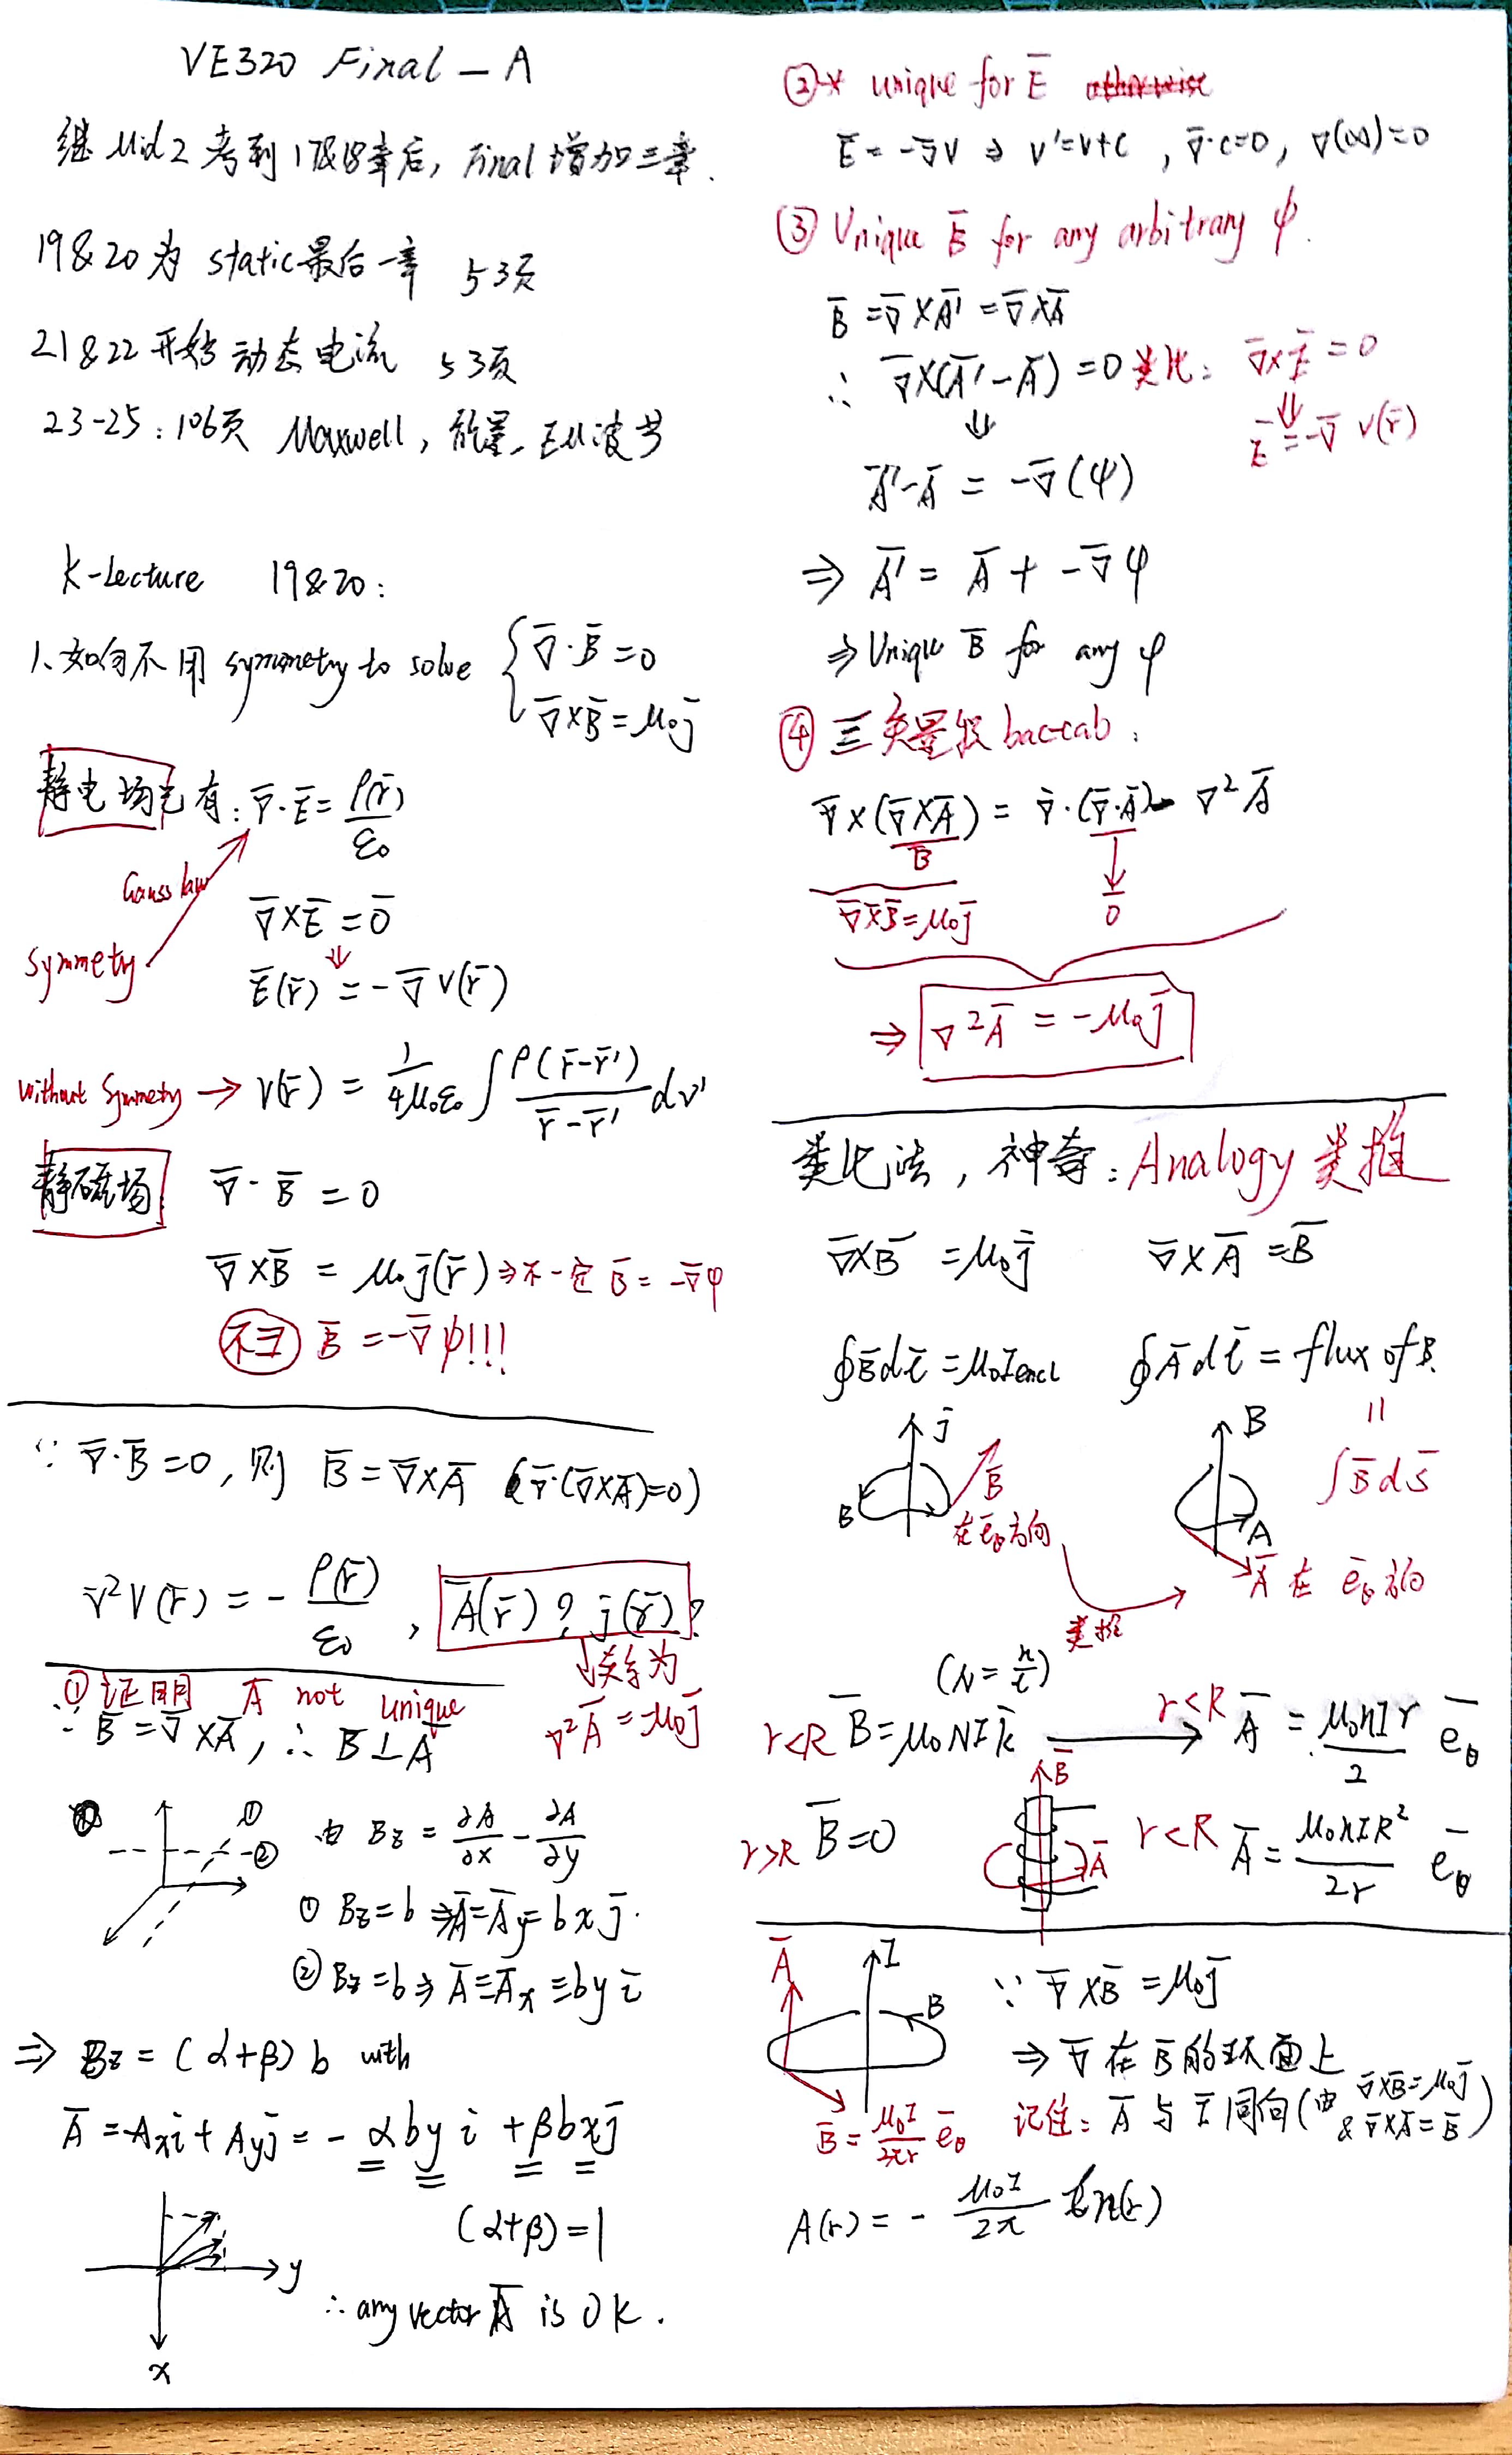 VE320 Final - A
继 Mid 2 考到 17&18章后, Final 增加三章.
19&20 为 static最后一章 53页
21&22 开始 动态电流 53页
23-25: 106页 Maxwell, 能量, EM波
K-Lecture 19&20:
1. 如何不用 symmetry to solve { ∇̄·B̄ = 0
∇̄×B̄ = μ₀j̄
静电场 有: ∇̄·Ē = ρ(r̄)/ε₀
Gauss law
∇̄×Ē = 0̄
Symmetry
⇓
Ē(r̄) = -∇̄V(r̄)
Without Symmetry → V(r̄) = 1/4μ₀ε₀ ∫ ρ(r̄-r̄')/r̄-r̄' dv'
静磁场: ∇̄·B̄ = 0
∇̄×B̄ = μ₀j̄(r̄) ⇒ 不一定 B̄ = -∇̄φ
不∃ B̄ = -∇̄ψ!!!
∵ ∇̄·B̄ = 0, 则 B̄ = ∇̄×Ā (∇̄·(∇̄×Ā)=0)
∇̄²V(r̄) = - ρ(r̄)/ε₀ , Ā(r̄) ? j̄(r̄)?
↓关系为
∇²Ā = -μ₀j̄
① 证明 Ā not unique
∵ B̄ = ∇̄×Ā, ∴ B̄⊥Ā
①
②
由 Bz = ∂A/∂x - ∂A/∂y
① Bz = b ⇒ Ā = Āy = bxj̄.
② Bz = b ⇒ Ā = Āx = by ī
⇒ Bz = (α+β)b with
Ā = Axī + Ayj̄ = -αby ī + βbxj̄
(α+β) = 1
y
x
∴ any vector Ā is OK.
② unique for Ē
Ē = -∇̄V ⇒ V' = V+C , ∇̄·C=0, ∇(∞)=0
③ Unique B̄ for any arbitrary ψ.
B̄ = ∇̄×Ā' = ∇̄×Ā
∴ ∇̄×(Ā'-Ā) = 0 类比: ∇̄×Ē = 0
⇓ ⇓
Ē = -∇̄ V(r̄)
Ā'-Ā = -∇̄(ψ)
⇒ Ā' = Ā + -∇̄φ
⇒ Unique B̄ for any φ
④ 三矢量积 bac-cab:
∇̄×(∇̄×Ā) = ∇̄·(∇̄·Ā) - ∇²Ā
B̄ ↓
∇̄×B̄ = μ₀j̄ 0
⇒ ∇²Ā = -μ₀j̄
类比法, 神奇: Analogy 类推
∇̄×B̄ = μ₀j̄ ∇̄×Ā = B̄
∮B̄dl̄ = μ₀Iencl ∮Ādl̄ = flux of B.
j̄ B =
B B̄ A ∫B̄ds̄
在ēθ方向 Ā 在 ēθ方向
类推
(N = n/l)
r<R B̄ = μ₀NI k̄ → r<R Ā = μ₀nIr/2 ēθ
B̄
r>R B̄ = 0 Ā r<R Ā = μ₀nIR²/2r ēθ
Ā I ∵ ∇̄×B̄ = μ₀j̄
B
⇒ ∇̄ 在 B̄ 的环面上
B̄ = μ₀I/2πr ēθ 记住: Ā 与 Ī 同向 (由 ∇̄×B̄=μ₀j̄ & ∇̄×Ā=B̄)
A(r) = - μ₀I/2π ln(r)